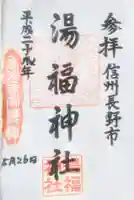 参拝
信州長野市
湯福神社
平成二十九年
5月26日